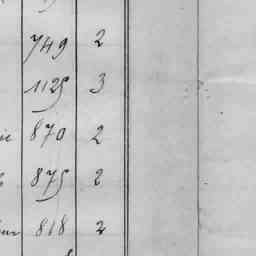 749 2
1125 3
870 2
875 2
818 2